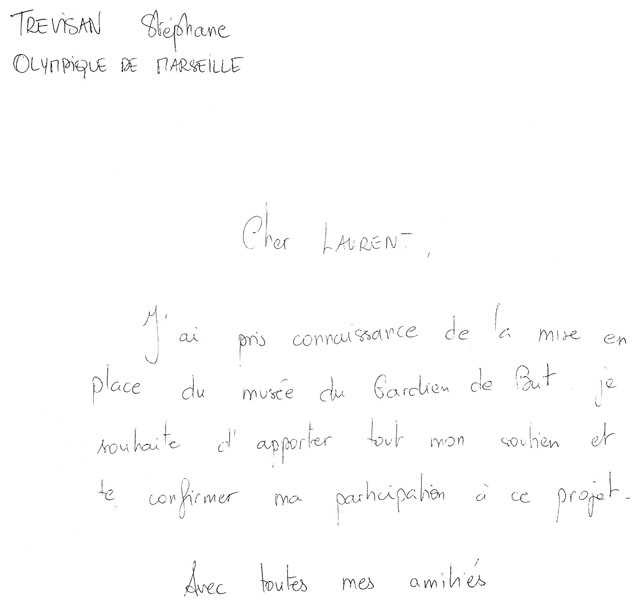 TREVISAN Stéphane
OLYMPIQUE DE MARSEILLE
Cher LAURENT,
J'ai pris connaissance de la mise en
place du musée du Gardien de But je
souhaite d'apporter tout mon soutien et
te confirmer ma participation à ce projet.
Avec toutes mes amitiés